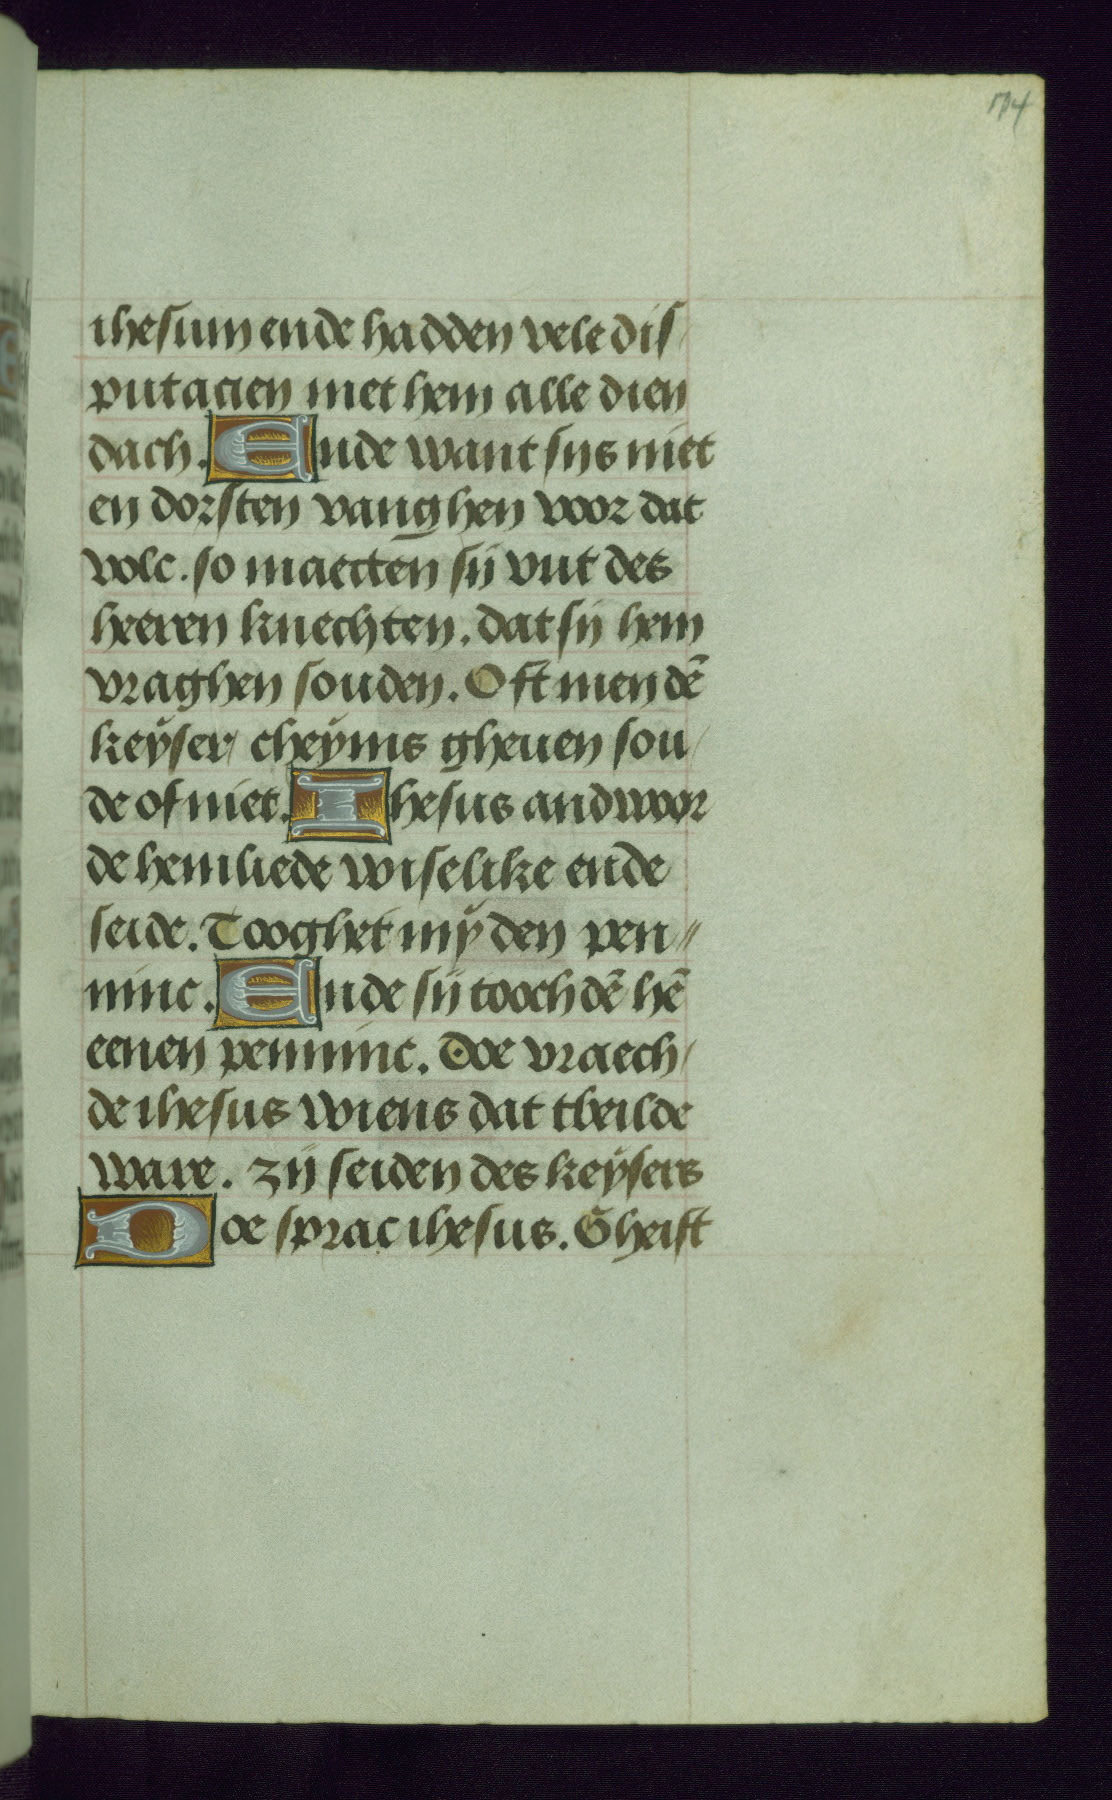 174
ihesum ende hadden vele dis/
putacien met hem alle dien
dach. Ende want sijs niet
en dorsten vanghen voor dat
volc. so maecten sij vut des
heeren knechten. dat sij hem
vraghen souden. Oft men dē
keÿser/ cheÿins gheuen sou/
de of niet. Ihesus andwoor
de hemliede wiselike ende
seide. Tooghet mÿ den pen//
ninc. Ende sij toochdē hē
eenen penninc. Doe vraech/
de ihesus wiens dat tbeilde
ware. zij seiden des keÿsers
Doe sprac ihesus. Gheift